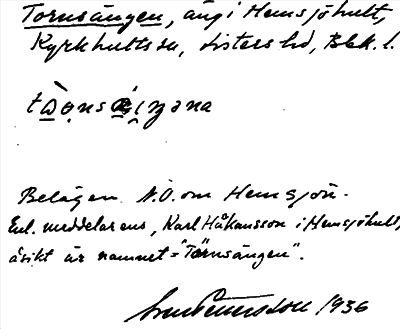 Tornsängen, äng i Hemsjöhult,
Kyrkhults sn, Listers hd, Blek. l.
Belägen N.O. om Hemsjön.
Enl. meddelarens, Karl Håkansson i Hemsjöhult,
åsikt är namnet = "Törnsängen".
1936